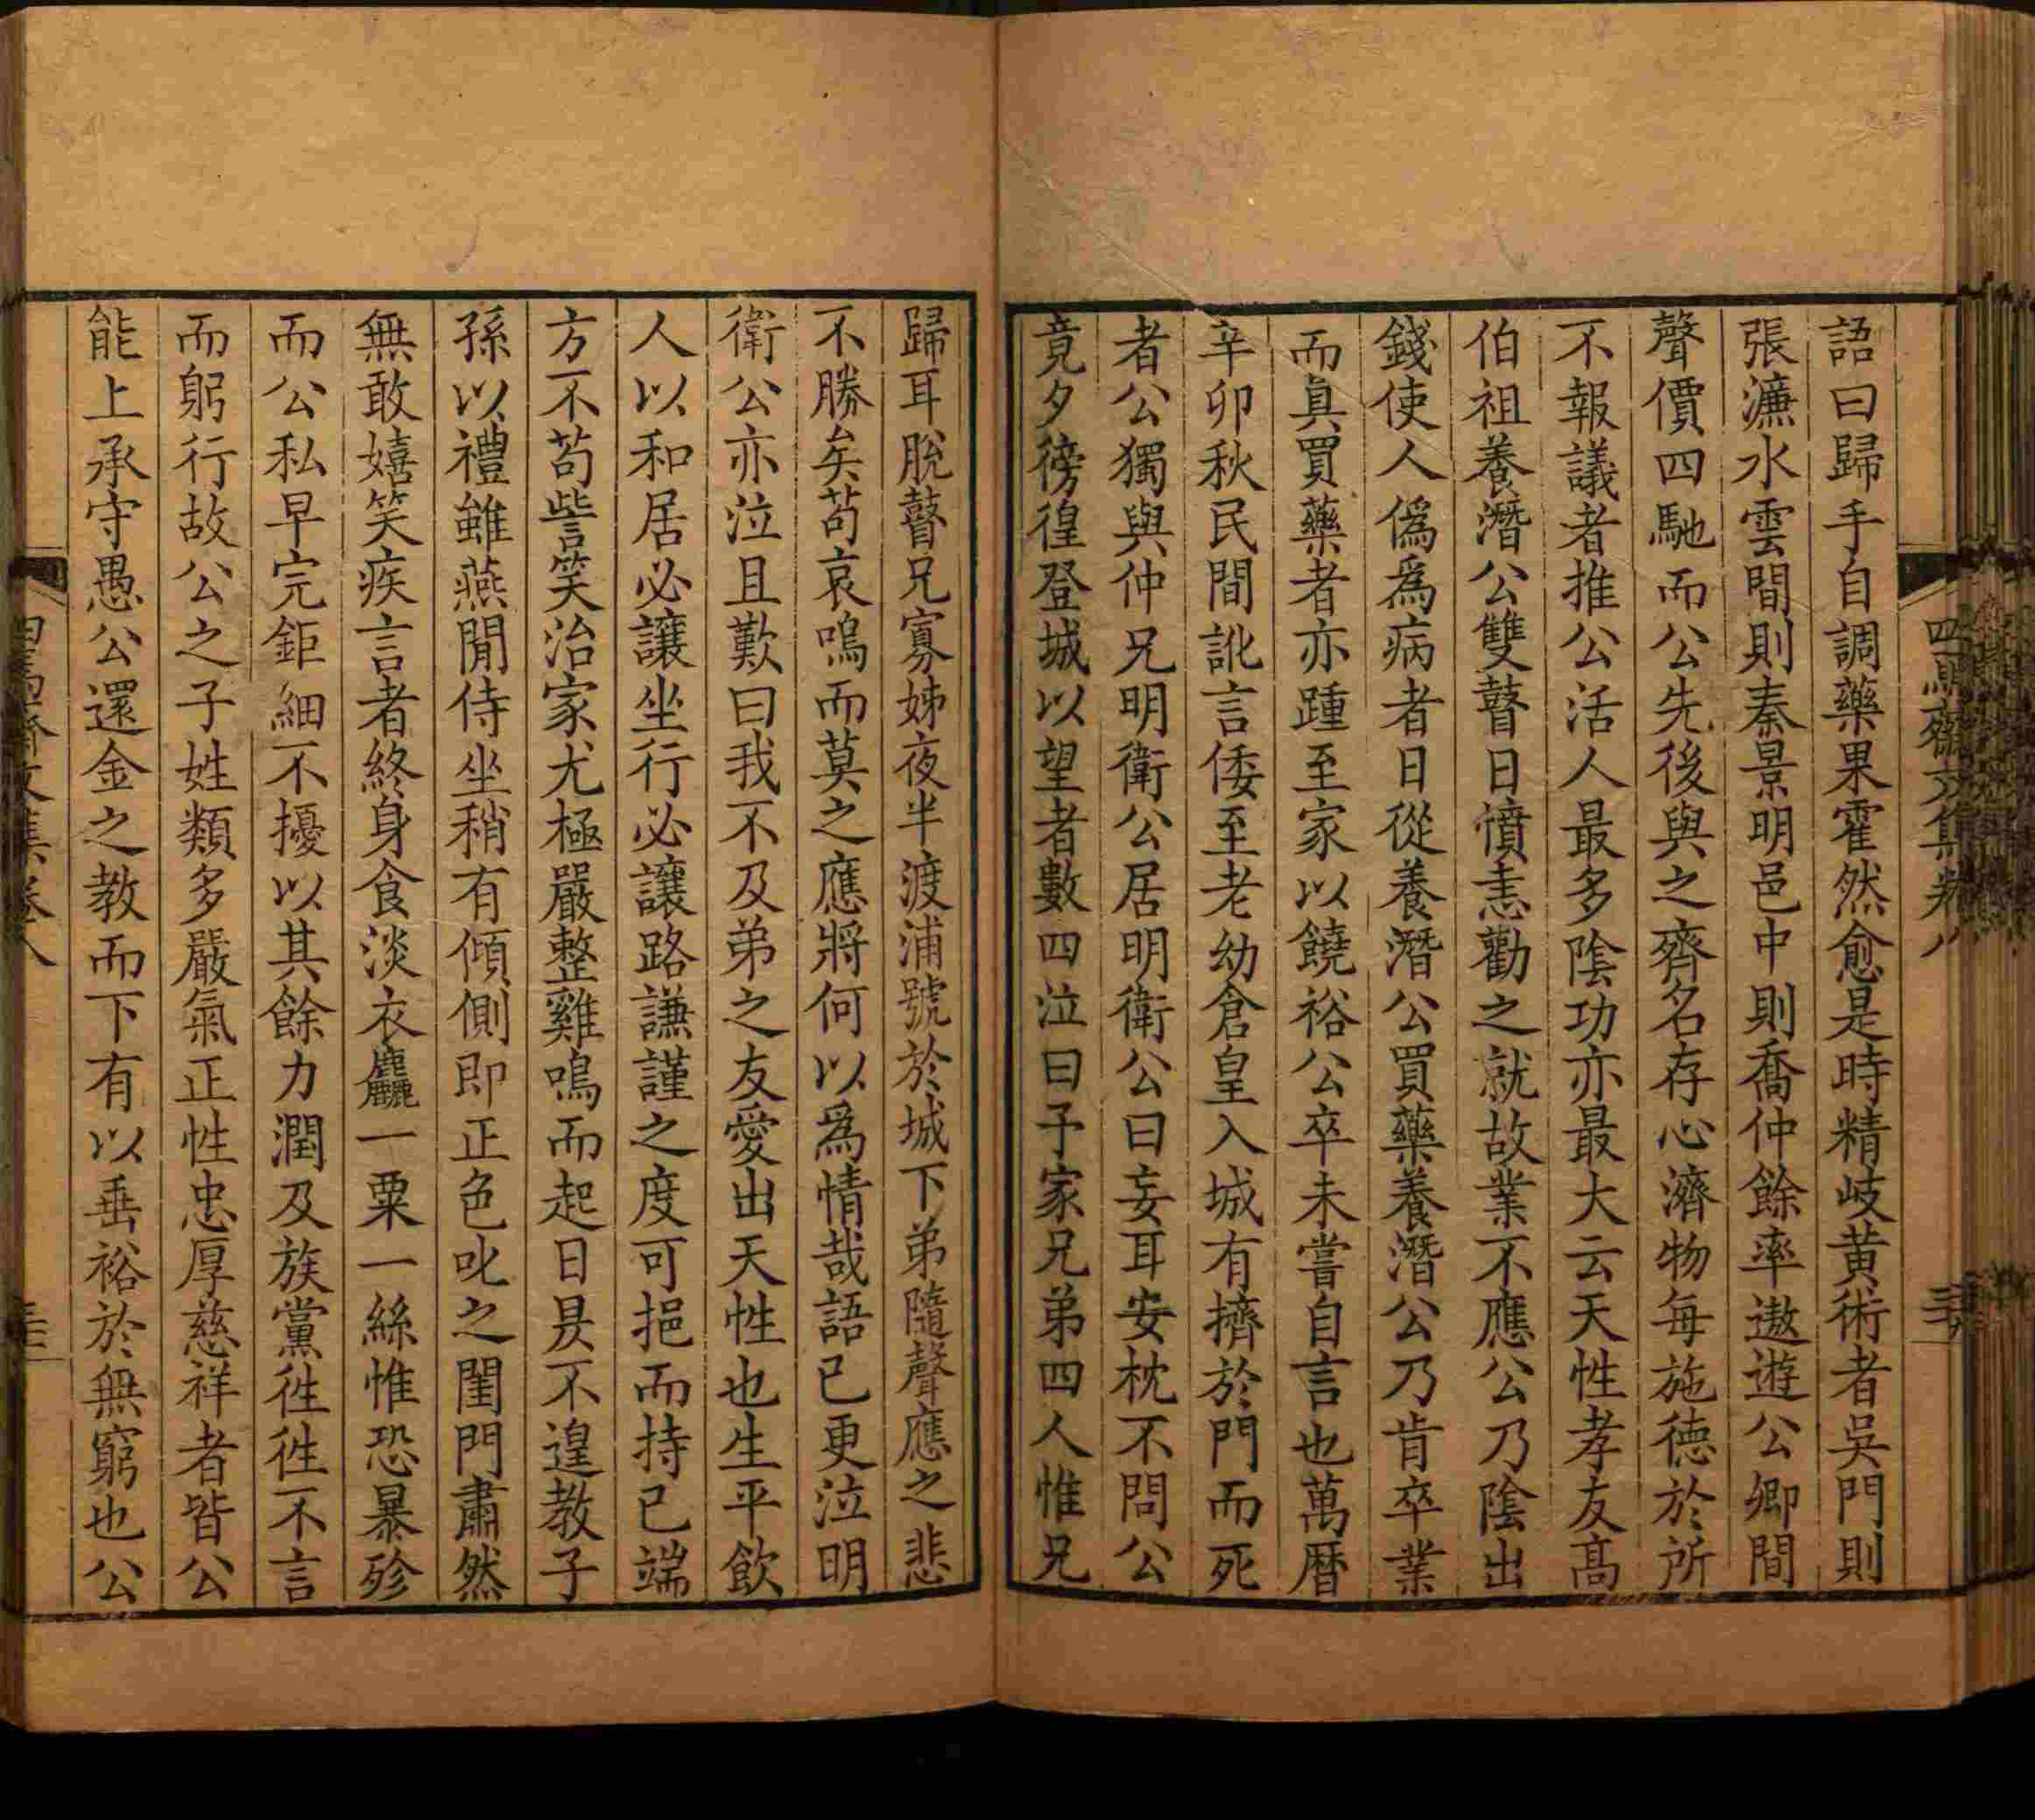 語曰歸手自調藥果霍然愈是時精岐黄術者吳門則
張濂水雲間則秦景明邑中則喬仲餘率遨遊公卿間
聲價四馳而公先後與之齊名存心濟物每施德於所
不報議者推公活人最多陰功亦最大云天性孝友髙
伯祖養潛公雙瞽日憤恚勸之就故業不應公乃陰出
錢使人僞爲病者日從養潛公買藥養潛公乃肯卒業
而真買藥者亦踵至家以饒裕公卒未嘗自言也萬曆
辛卯秋民間訛言倭至老幼倉皇入城有擠於門而死
者公獨與仲兄明衛公居明衛公曰妄耳安枕不問公
竟夕徬徨登城以望者數四泣曰予家兄弟四人惟兄
歸耳脫瞽兄寡姊夜半渡浦號於城下弟隨聲應之悲
不勝矣茍哀鳴而莫之應將何以爲情哉語已更泣明
衛公亦泣且歎曰我不及弟之友愛出天性也生平飲
人以和居必讓坐行必讓路謙謹之度可挹而持已端
方不茍訾笑治家尤極嚴整雞鳴而起日昃不遑教子
孫以禮雖燕閒侍坐稍有傾側即正色叱之閨門肅然
無敢嬉笑疾言者終身食淡衣麤一粟一絲惟恐暴殄
而公私早完鉅細不擾以其餘力潤及族黨徃徃不言
而躬行故公之子姓類多嚴氣正性忠厚慈祥者皆公
能上承守愚公還金之教而下有以垂裕於無窮也公